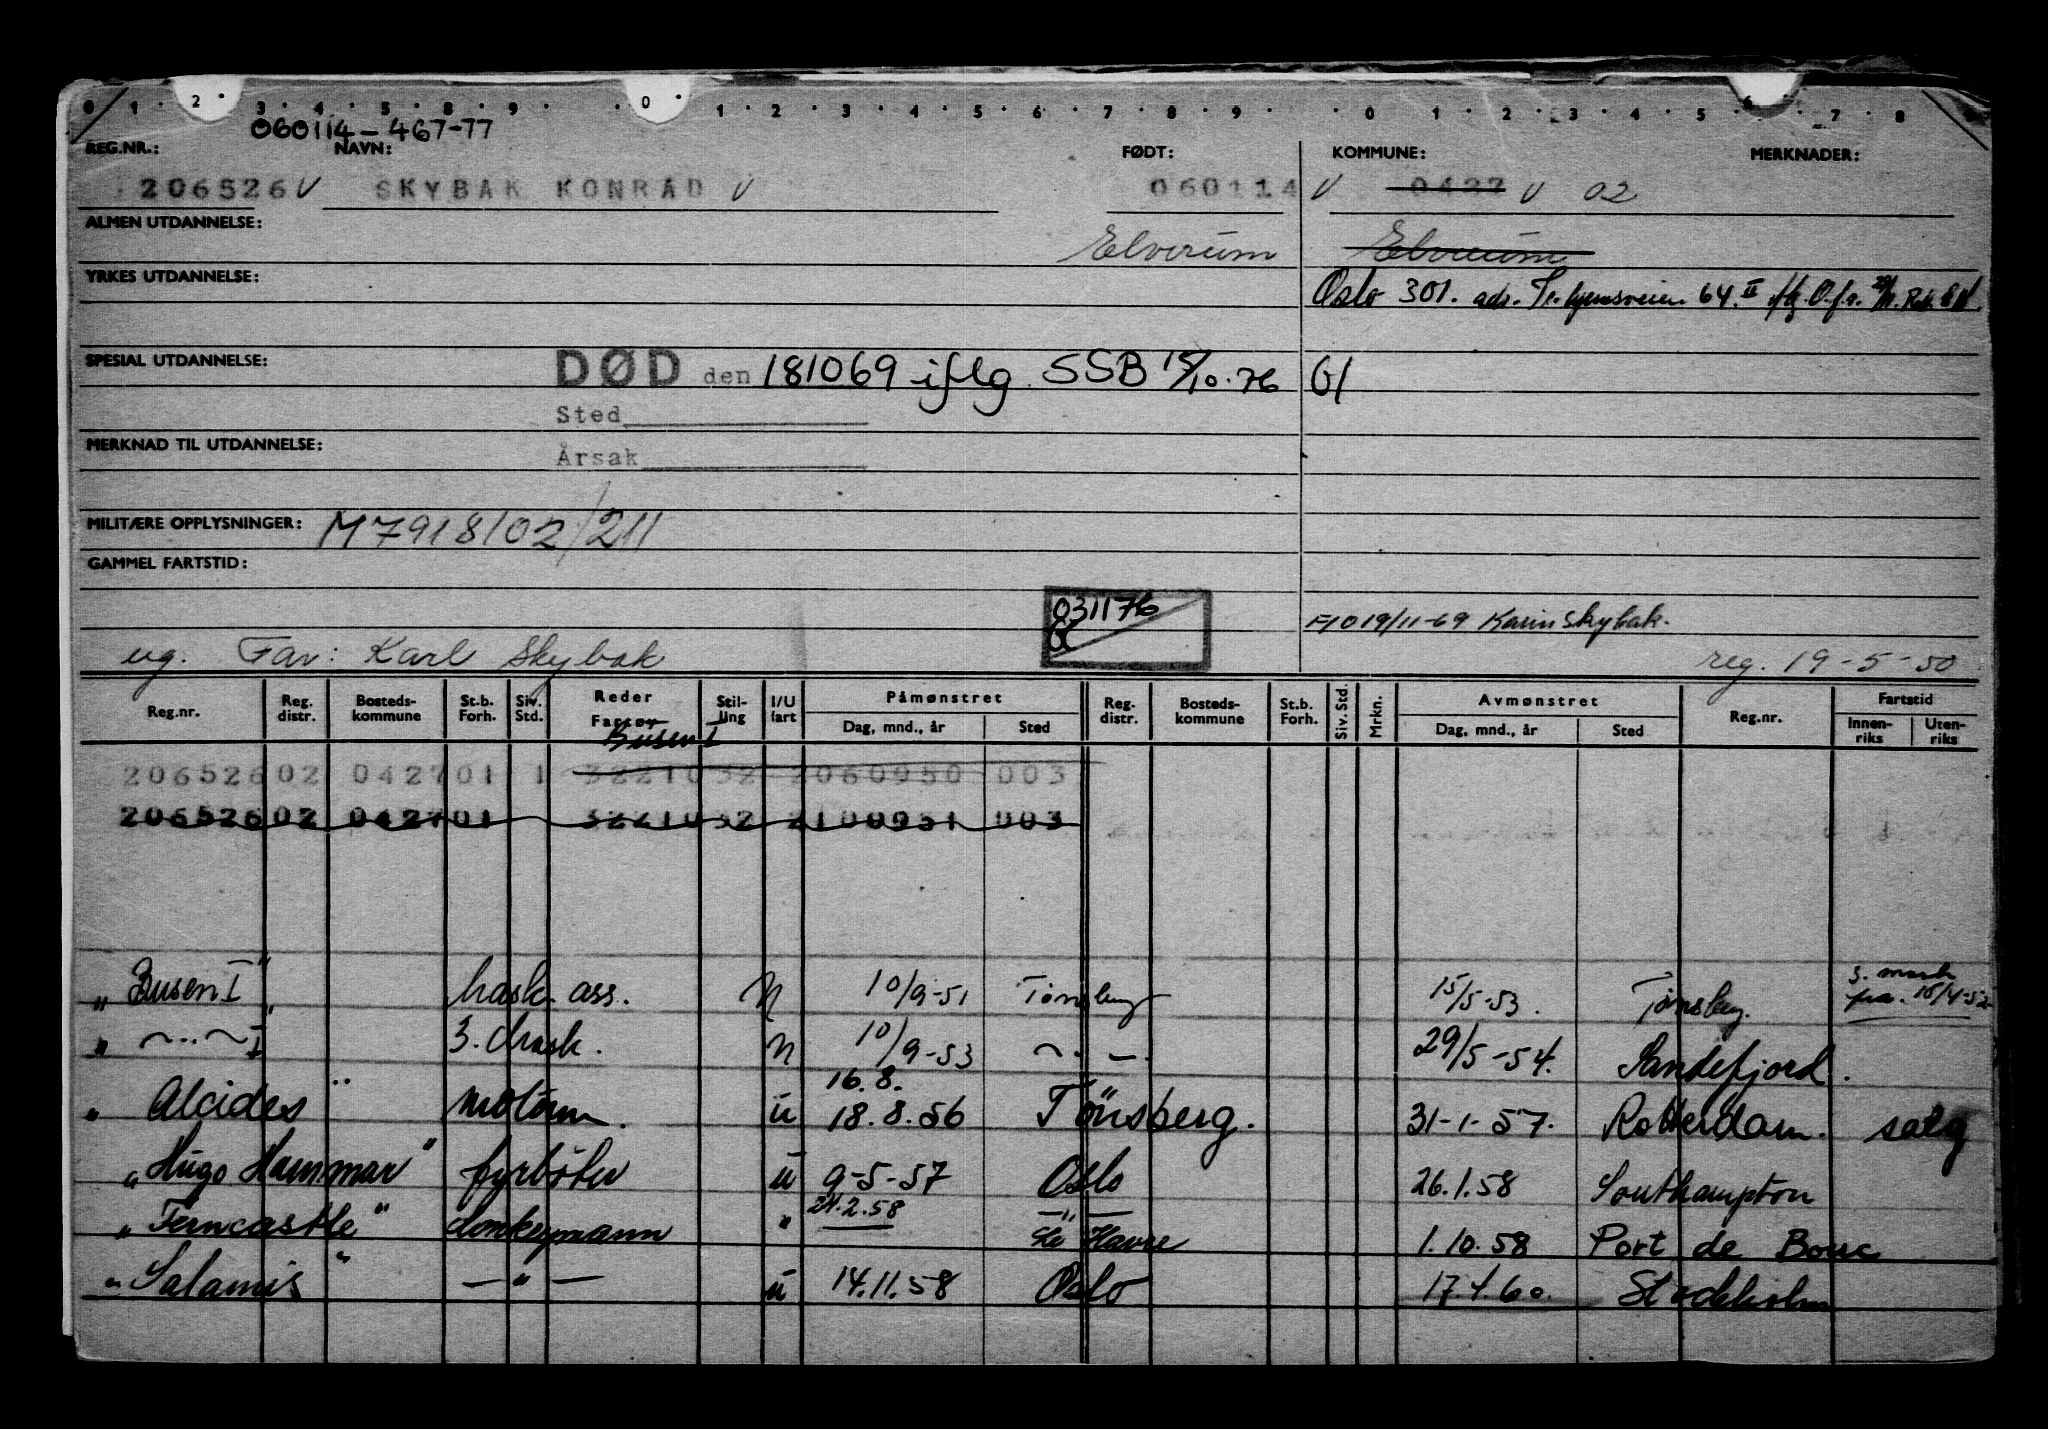 0 1 2 3 4 5 8 9 0 1 2 3 4 5 6 7 8 9 0 1 2 3 4 5 6 7 8
060114-467-77
REG.NR.: NAVN: FØDT: KOMMUNE: MERKNADER:
206526 V SKYBAK KONRAD V 060114 V 0427 V 02
ALMEN UTDANNELSE: Elverum Elverum
YRKES UTDANNELSE:
Oslo 301. adr. 64. II
SPESIAL UTDANNELSE: DØD den 181069 iflg. SSB 15/10.76
Sted
MERKNAD TIL UTDANNELSE:
Årsak
MILITÆRE OPPLYSNINGER: M7918/02/211
GAMMEL FARTSTID:
031176
19/11-69 Karin Skybak.
ug. Far: Karl Skybak reg. 19-5-50
Reg.nr. Reg. distr. Bosteds- kommune St.b. Forh. Siv. Std. Reder Fartøy Stil- ling I/U fart Påmønstret Dag, mnd., år Sted Reg. distr. Bosteds- kommune St.b. Forh. Siv. Std. Mrkn. Avmønstret Dag, mnd., år Sted Reg.nr. Fartstid Innen- riks Uten- riks
Busen I
206526 02 0427 01 1 3221032 2060950 003
206526 02 0427 01 3221032 2100951 003
"Busen I" mask. ass. N 10/9-51 Tønsberg 15/5-53. Tønsberg. 3. mask fra. 15/4-52
" ~..~ I" 3. mask. N 10/9-53 ~.-. 29/5-54. Sandefjord.
16.8.
"Alcides" motorm. u 18.8.56 Tönsberg. 31-1-57. Rotterdam. salg
"Hugo Hammar" fyrböter u 9-5-57 Oslo 26.1.58 Southampton
"Ferncastle" donkeymann " 21.2.58 Le Havre 1.10.58 Port de Bouc
"Salamis" —"— u 14.11.58 Oslo 17.1.60. Stockholm